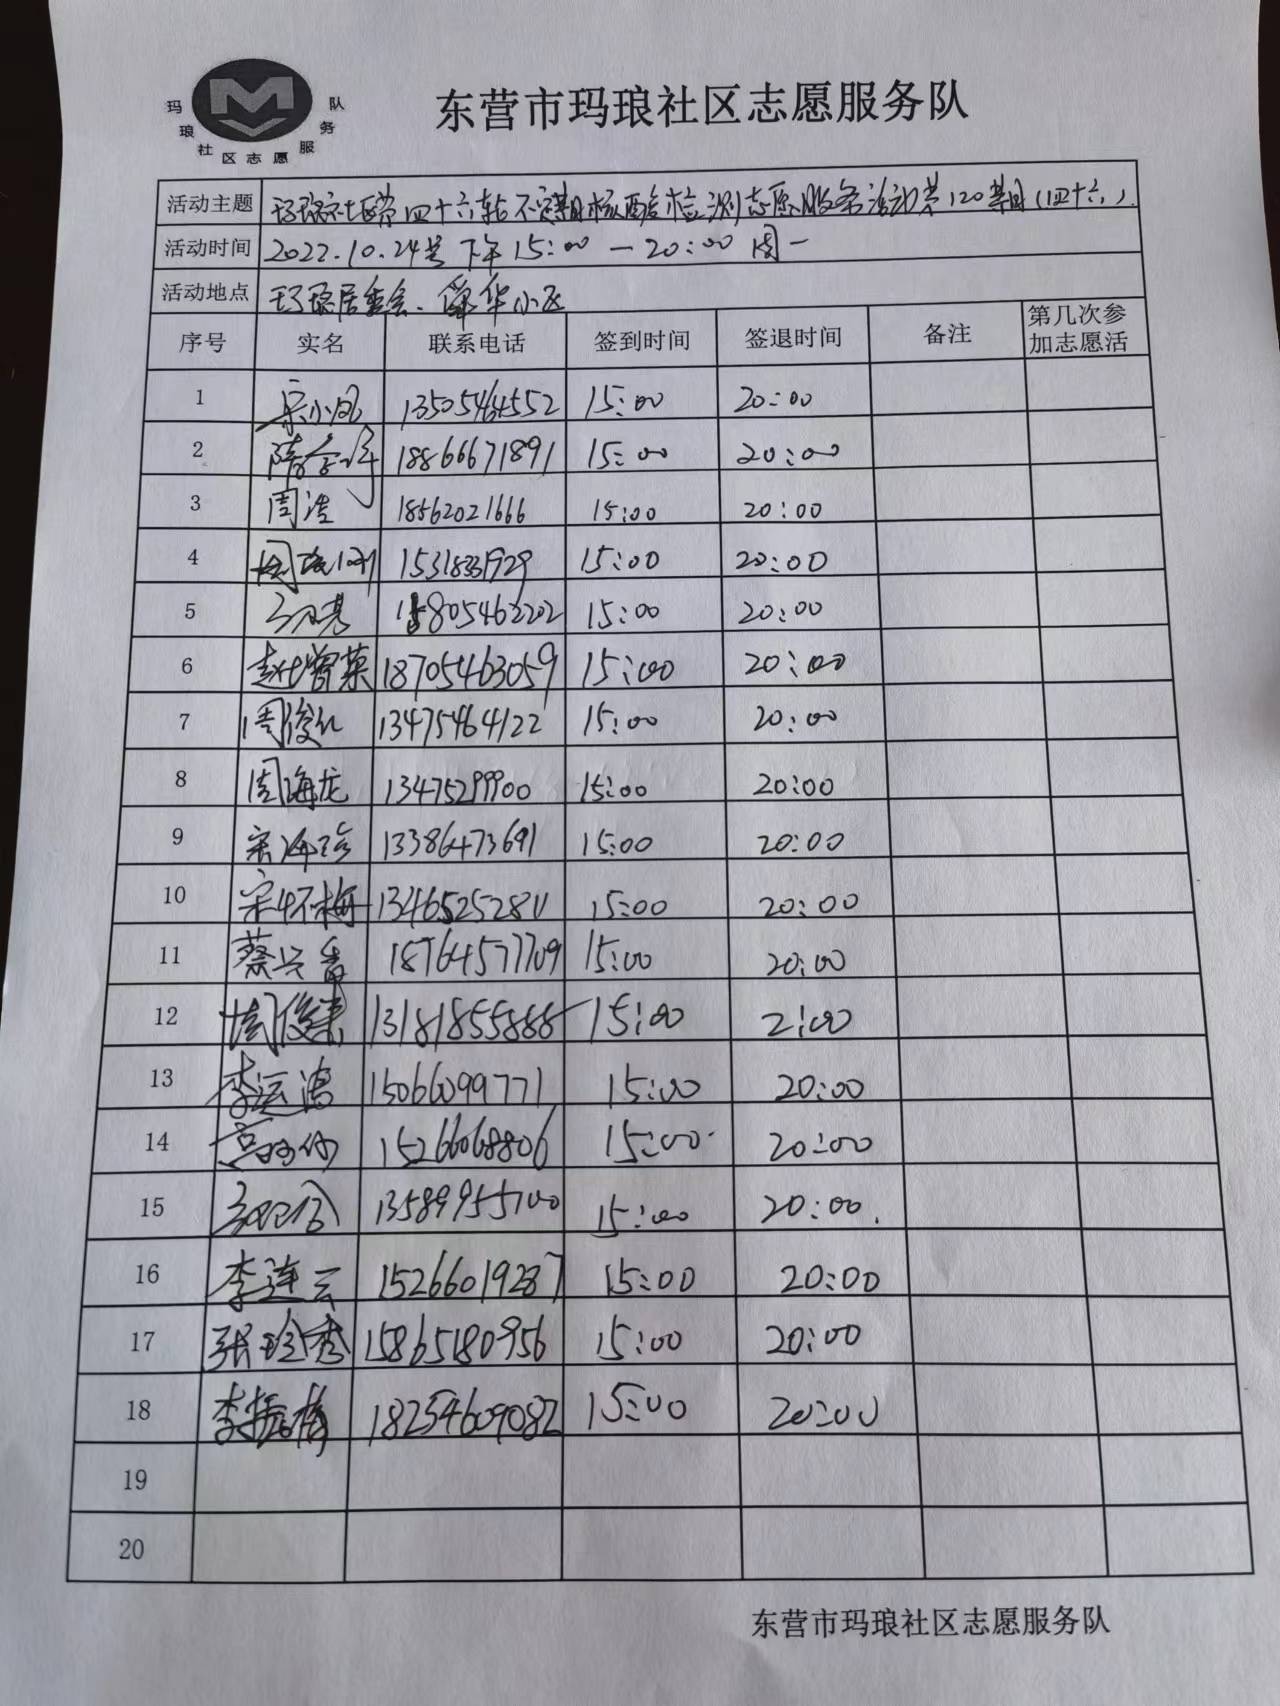 玛琅社区志愿服务队
东营市玛琅社区志愿服务队
活动主题 玛琅社区第四十六轮不定期核酸检测志愿服务活动第120期(四十六)
活动时间 2022.10.24号 下午15:00—20:00 周一
活动地点 玛琅居委会、舜华小区
序号 实名 联系电话 签到时间 签退时间 备注 第几次参
加志愿活
1 宋小凤 13505464552 15:00 20:00
2 18866671891 15:00 20:00
3 周洁 18562021666 15:00 20:00
4 15318331929 15:00 20:00
5 15805462202 15:00 20:00
6 赵增菊 18705463059 15:00 20:00
7 周俊红 13475464122 15:00 20:00
8 周海龙 13475299900 15:00 20:00
9 宋海珍 13386473691 15:00 20:00
10 宋怀梅 13465252811 15:00 20:00
11 蔡兴香 18764577709 15:00 20:00
12 13181855888 15:00 2:00
13 李运鸿 15066099771 15:00 20:00
14 15266068806 15:00 20:00
15 13589955700 15:00 20:00.
16 李连云 15266019287 15:00 20:00
17 张玲秀 15865180956 15:00 20:00
18 李振梅 18254609082 15:00 20:00
19
20
东营市玛琅社区志愿服务队